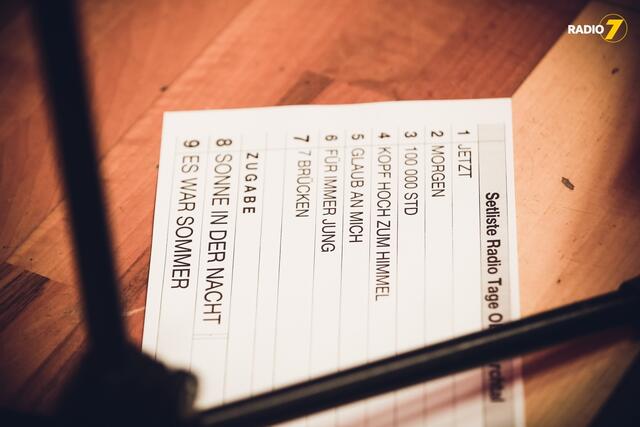 RADIO 7
Setliste Radio Tage
1 JETZT
2 MORGEN
3 100 000 STD
4 KOPF HOCH ZUM HIMMEL
5 GLAUB AN MICH
6 FÜR IMMER JUNG
7 7 BRÜCKEN
ZUGABE
8 SONNE IN DER NACHT
9 ES WAR SOMMER